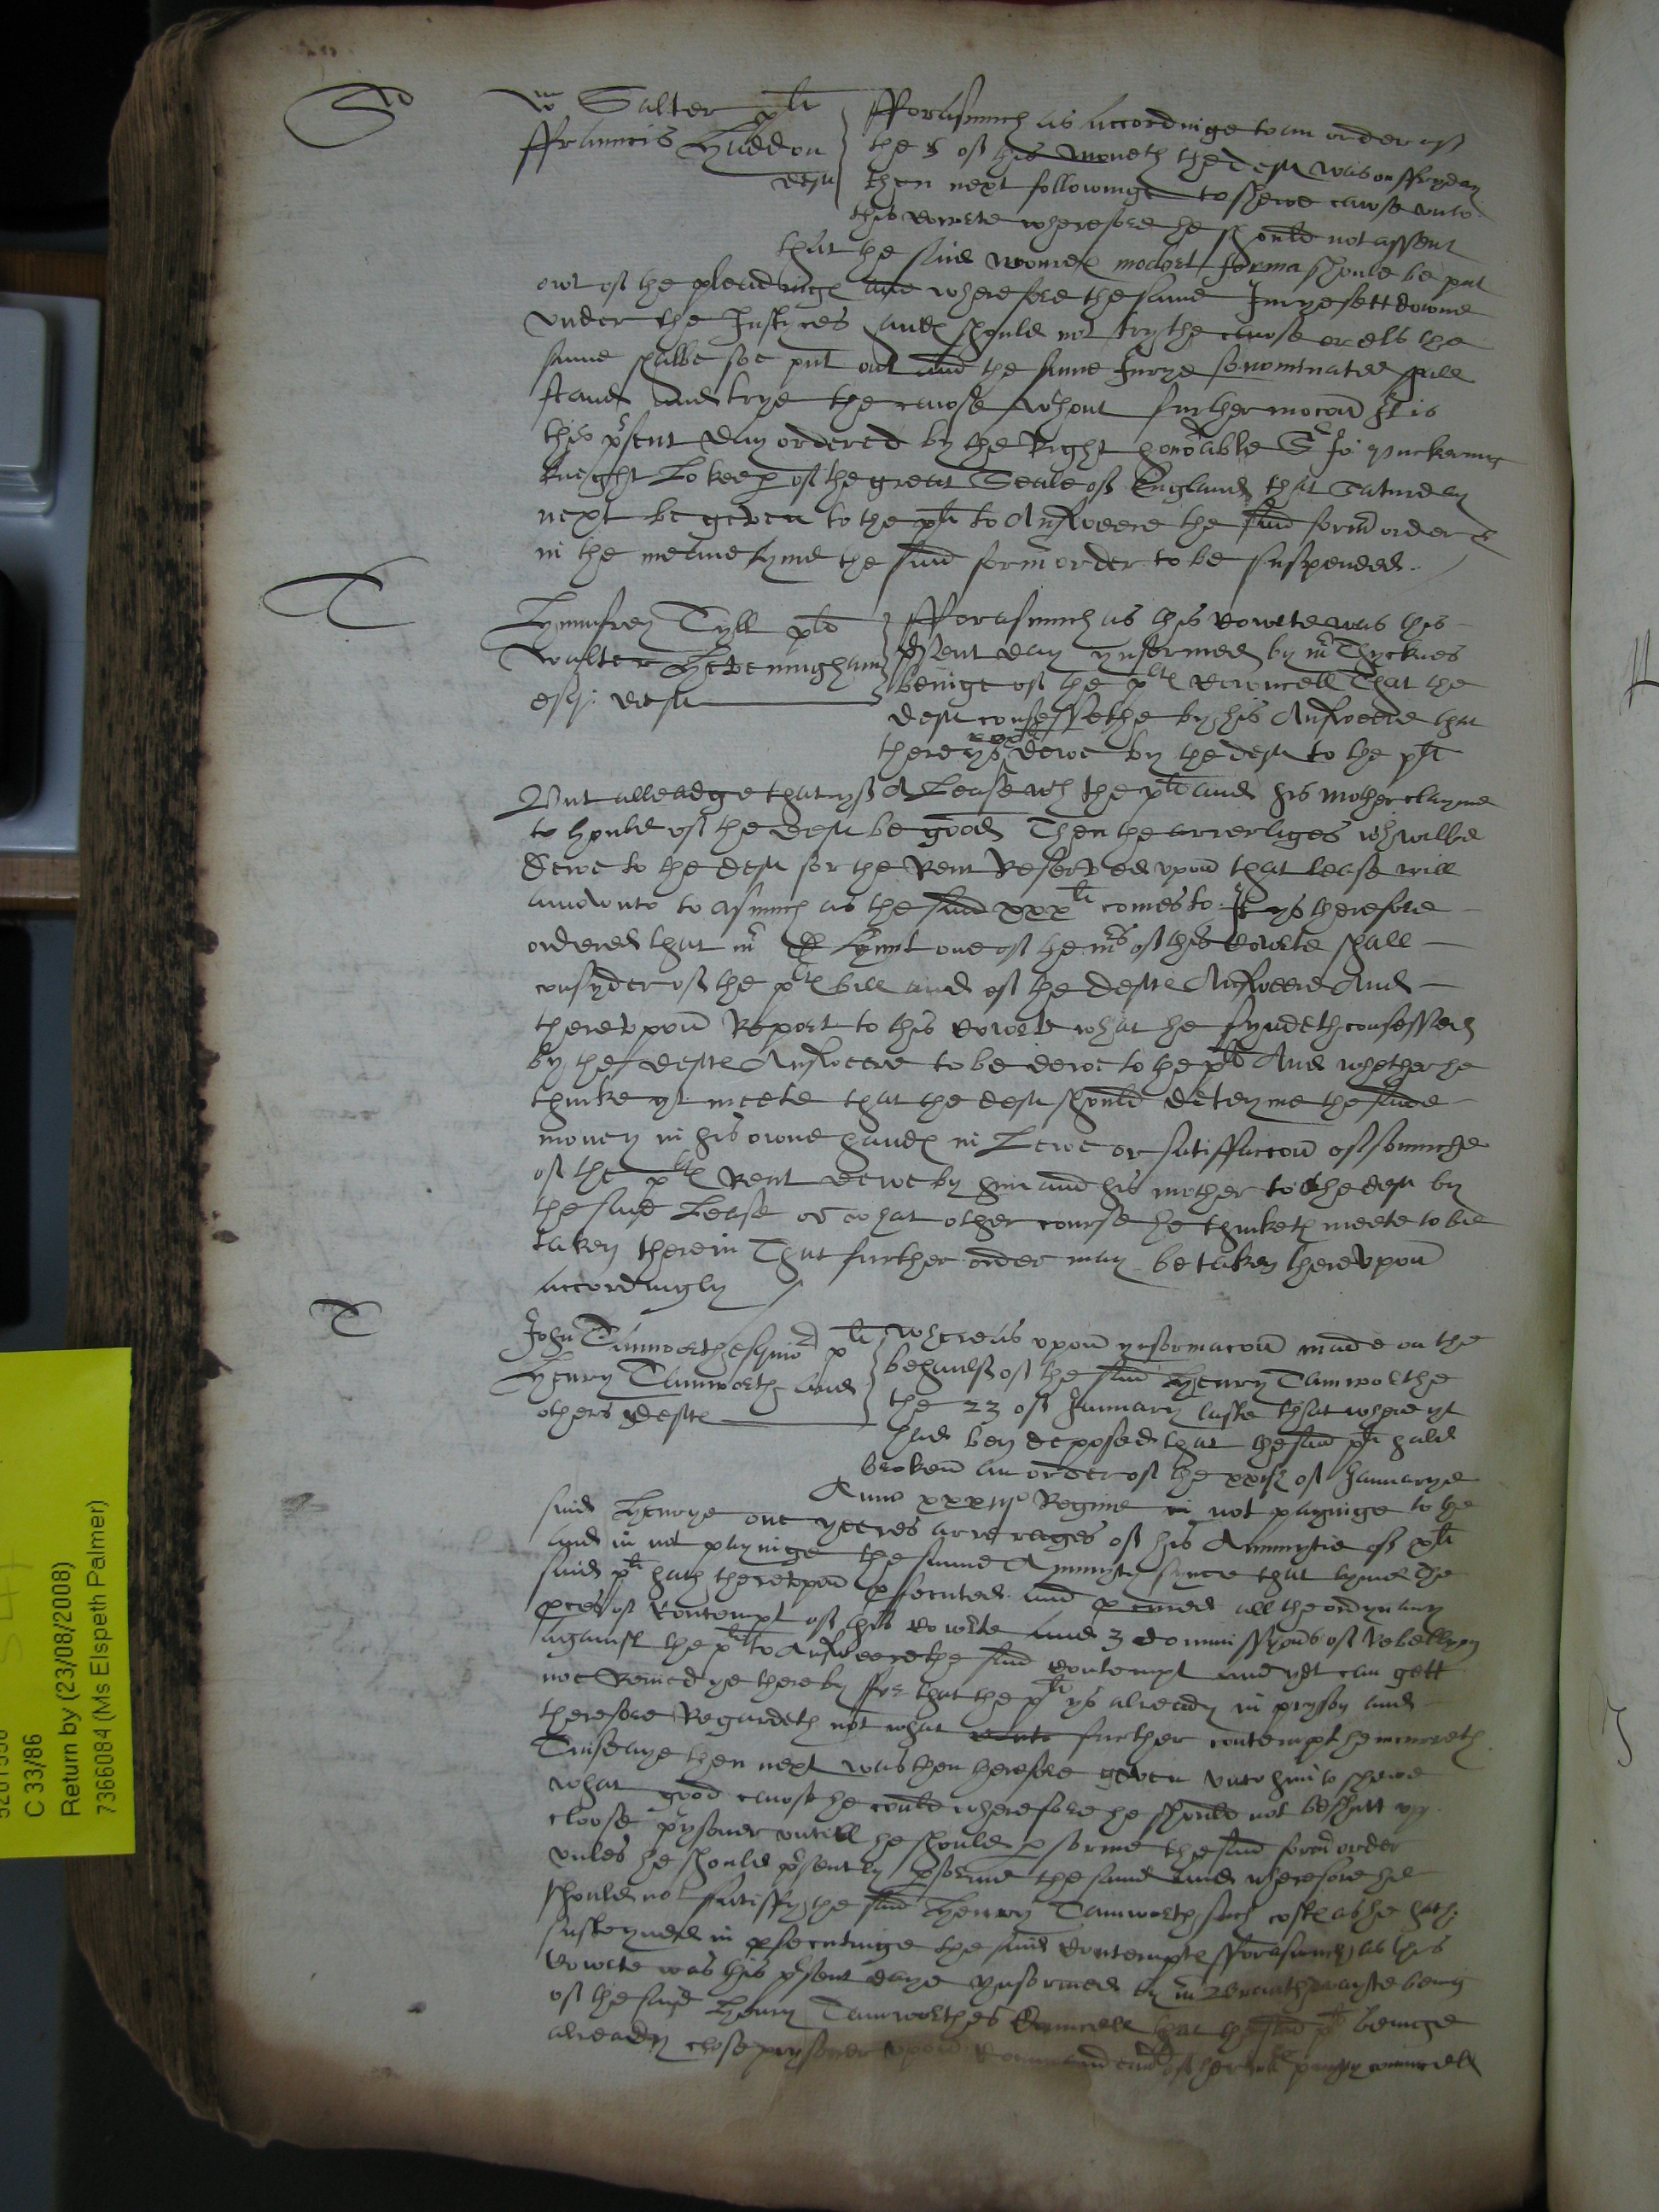 S
Wm Salter plt
Ffrauncis Haddon
deft
Fforasmuch as accordinge to an order of
the 8 of this moneth the deft was on ffryday
then next followinge to shewe cawse unto
this cowrte wherefore he should not assent
that the said wordes modo et forma should be put
owt of the pleadinges and wherefore the same Jurye sett downe
under the Justyces handes should not try the cause or els the
same shalbe soe put out and the same Jurye so nominated shall
stand and trye the cause wthout further mocion It is
this psent day ordered by the Right honorable Sr Jo: Puckering
knight Lo: keeper of the great Seale of England that Saturday
next be geven to the plt to Answeere the said former order &
in the meane tyme the said former order to be suspended
T
Humfrey Tyll plt
Walter Heveningham
esq: deft
Fforasmuch as this cowrte was this
psent day ynformed by mr Thycknes
beinge of the pltes councell That the
deft confessethe by his Answeere that
there ys xxxli dewe by the deft to the plt
But alleadge that yf A Lease wch the plt and his mother clayme
to hould of the deft be good Then the arrerages wch wilbe
dewe to the deft for the Rent Reserved upon that lease will
amownte to asmuch as the said xxxli comes to It ys therefore
ordered that mr D Hunt one of the mrs of this Cowrte shall
consyder of the pltes bill and of the deftes Answeere And
thereupon Report to this cowrte what he fyndeth confessed
by the deftes Answeere to be dewe to the plt And whether he
thinke yt meete that the deft should deteyne the said
money in his owne handes in Lewe or satisfaccion of somuche
of the pltes Rent dewe by him and his mother to the deft by
the said Lease or what other course he thinketh meete to be
taken therein That further order may be taken thereupon
accordingly
T
John Tamworthe esquior plt
Henry Tamworth and
others deftes
Whereas upon ynformacion made on the
behaulf of the said Henry Tamworthe
the 23 of January laste that where yt
had ben deposed that the said plt hadd
broken an order of the xxith of Januarye
Anno xxxiiio Regine in not payinge to the
said Henrye one yeeres arrerages of his Annuytie of xxli
and in not payinge the same Annuyty synce that tyme The
said plt hath thereupon psecuted and pcured all the ordynary
pces of Contempt of this cowrte and 3 Commissyons of Rebellyon
against the plt to Answeere the said contempt and yet can gett
noe Remedye thereby ffor that the plt ys already in pryson and
therefore Regardeth not what further contempt he incurreth
Tuisdaye then next was then therefore geven unto him to shewe
what good cause he could wherefore he should not be shutt upp
cloose prysoner untill he should pforme the said former order
unles he should psently pforme the same and wherefore he
should not satisfy the said Henry Tamworth such costes as he hath
susteyned in psecutinge the said Contemptes Fforasmuch as this
Cowrte was this psent daye ynformed by mr Brathwayte being
of the said Henry Tamworthes Councell that the said plt beinge
already close prysoner upon Commandemt of her mates pryvy councell
C 33/86
Return by (23/08/2008)
7366084 (Ms Elspeth Palmer)